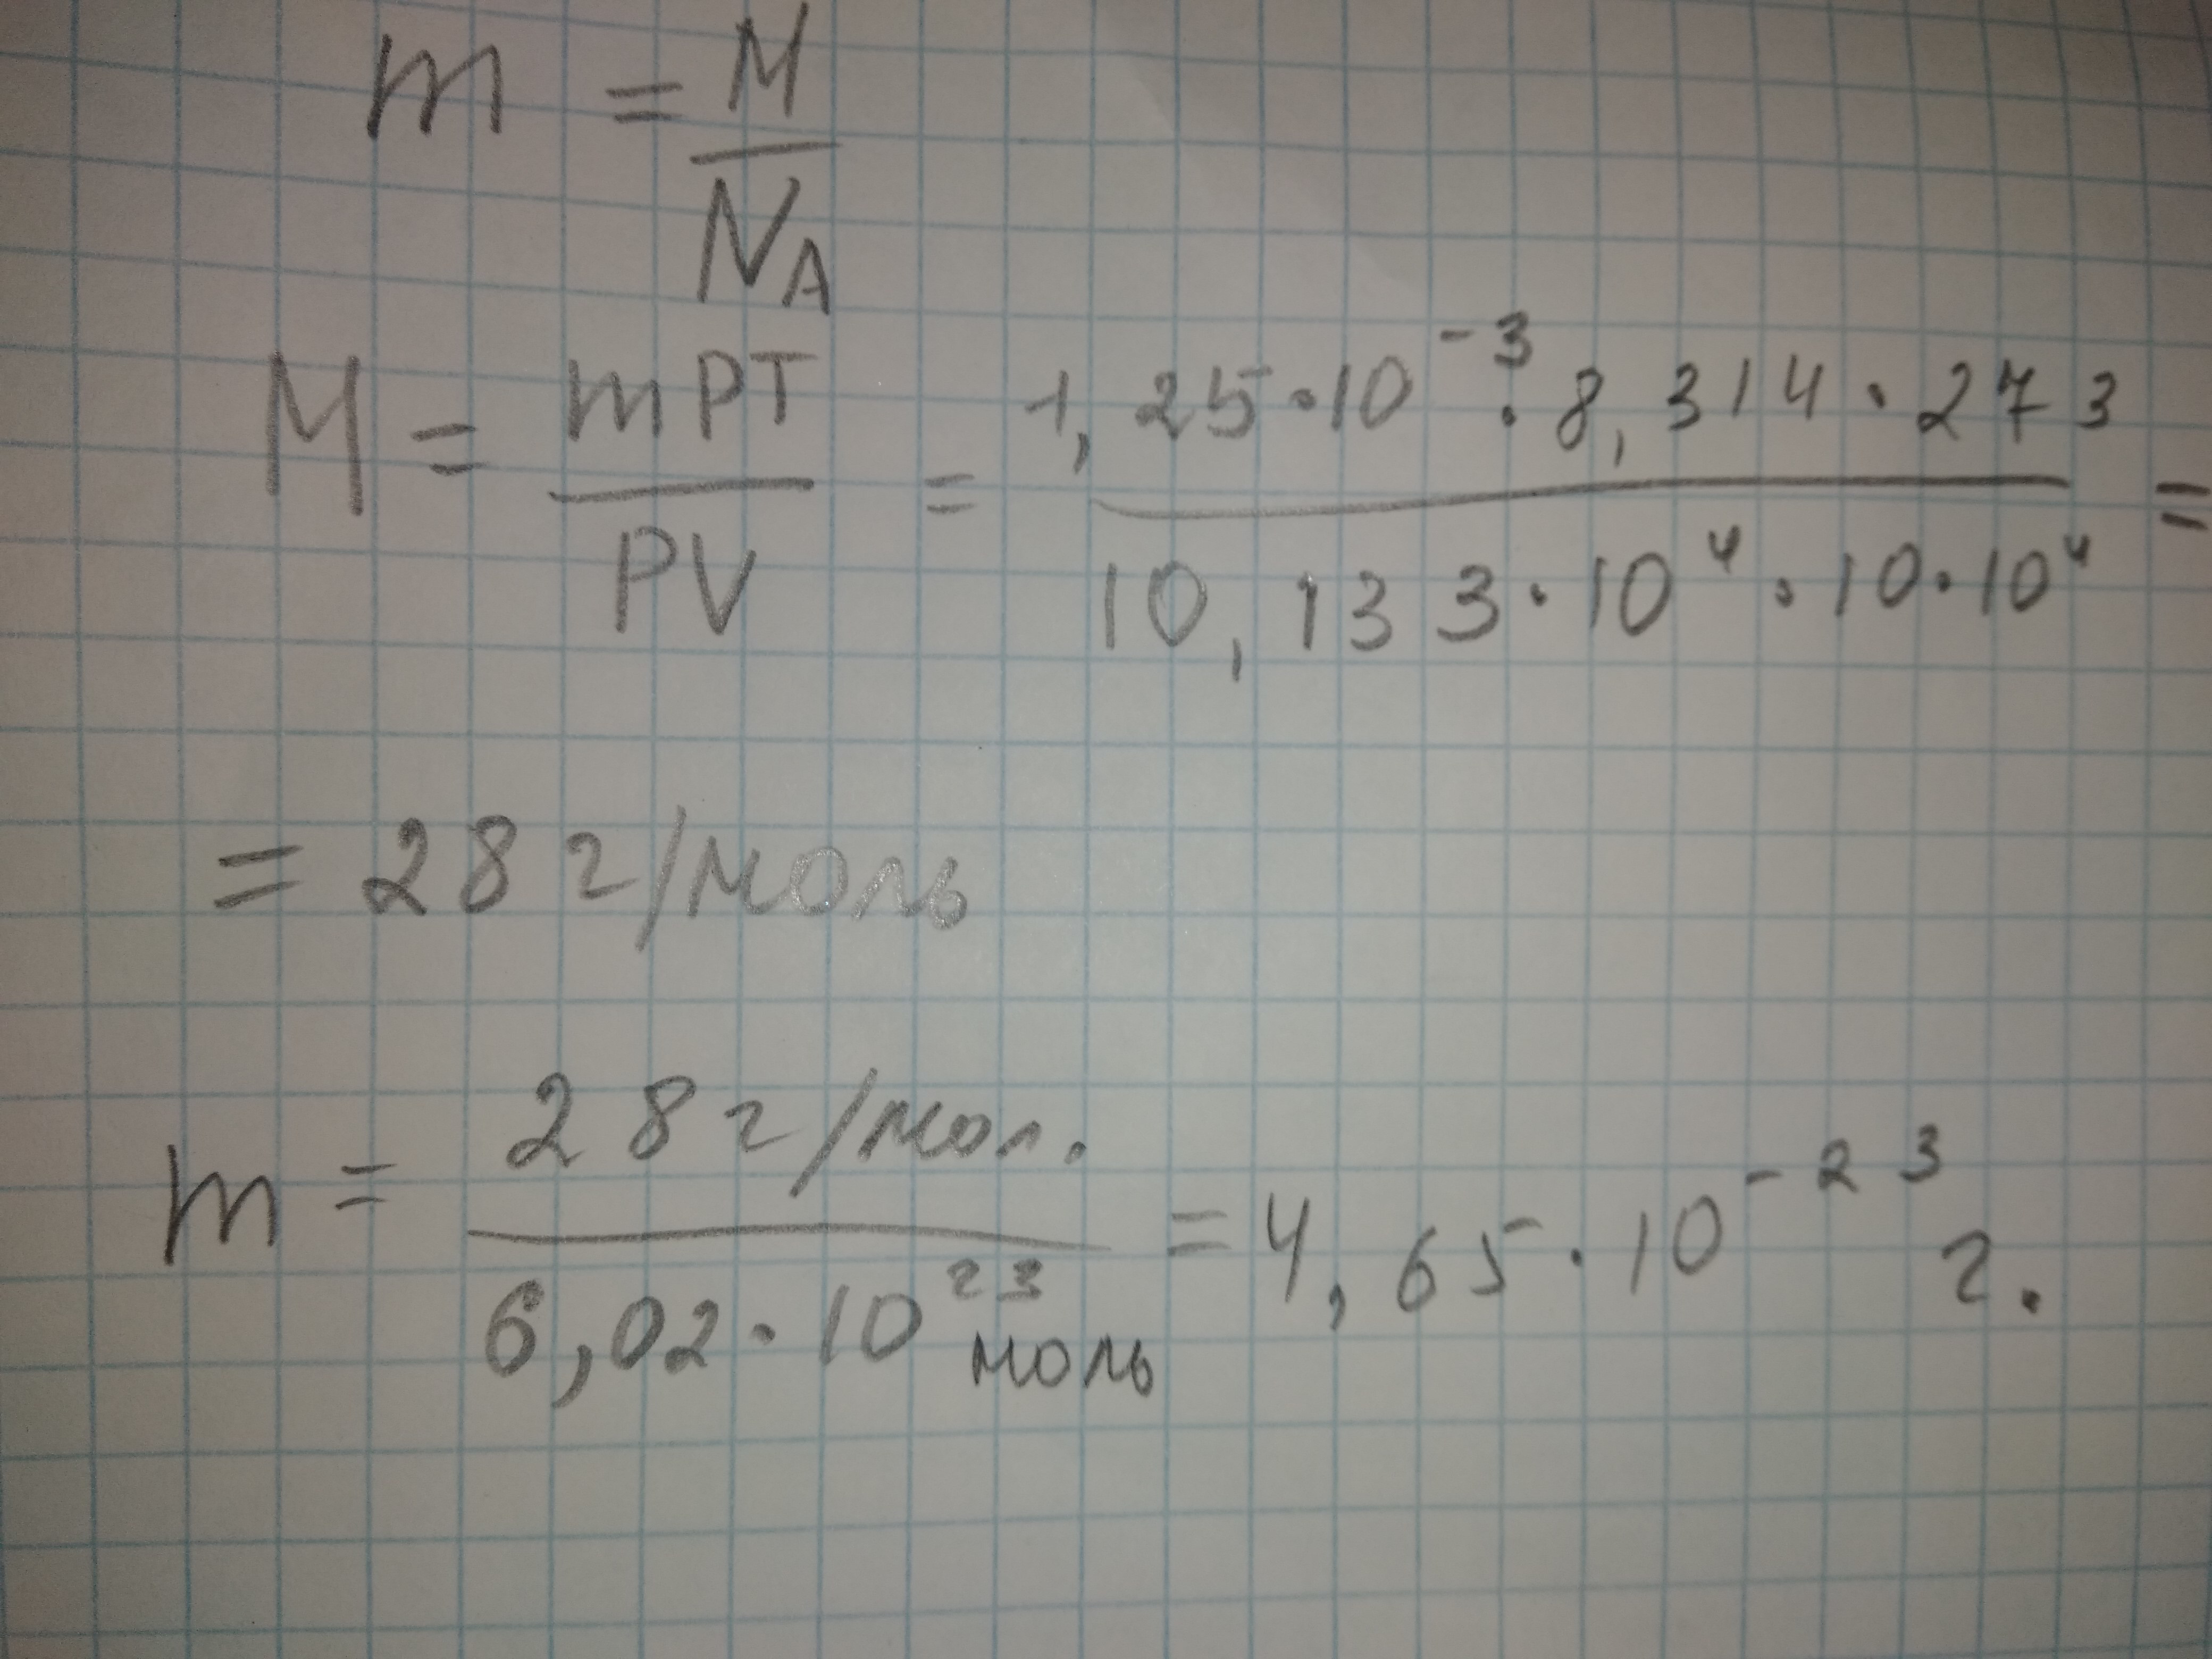 m = M/N_A
M = mPT/PV = 1,25·10⁻³·8,314·273/10,133·10⁴·10·10⁴ =
= 28 г/моль
m = 28 г/мол./6,02·10²³ моль = 4,65·10⁻²³ г.